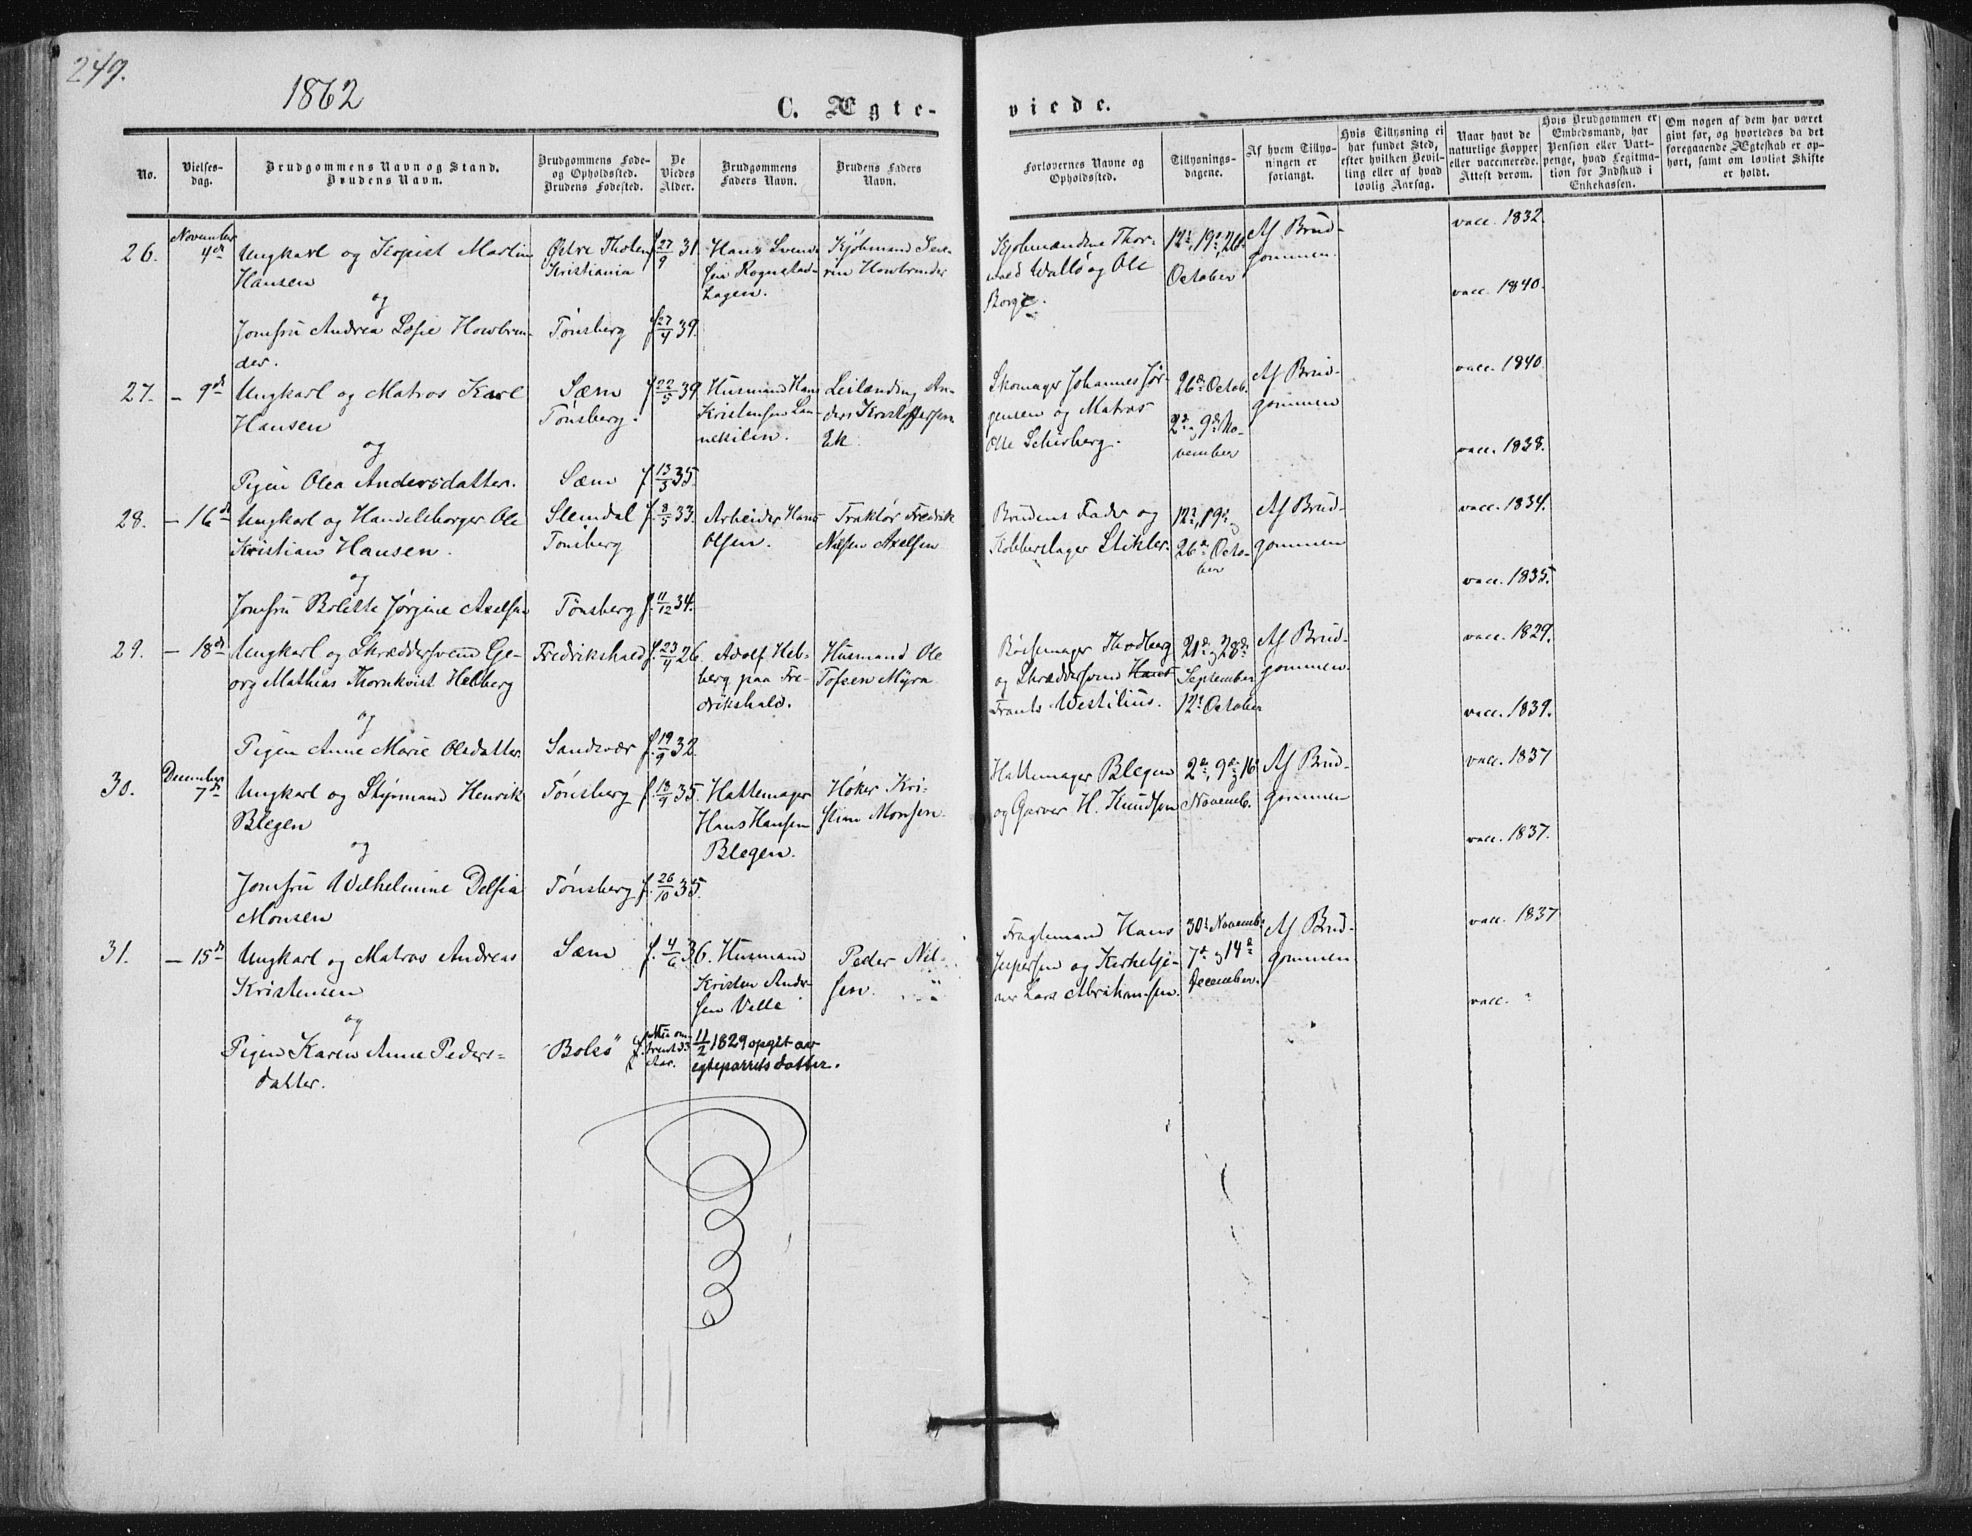 249.
1862
C. Ægte-
viede.
No.
Vielses-
dag.
Brudgommens Navn og Stand.
Brudens Navn.
Brudgommens Føde-
og Opholdssted.
Brudens Fødested.
De
Viedes
Alder.
Brudgommens
Faders Navn.
Brudens Faders
Navn.
Forlovernes Navne og
Opholdssted.
Tillysnings-
dagene.
Af hvem Tillys-
ningen er
forlangt.
Hvis Tillysning ei
har fundet Sted,
efter hvilken Bevil-
ling eller af hvad
lovlig Aarsag.
Naar havt de
naturlige Kopper
eller vaccinerede.
Attest derom.
Hvis Brudgommen er
Embedsmand, har
Pension eller Vart-
penge, hvad Legitima-
tion for Indskud i
Enkekassen.
Om nogen af dem har været
gift før, og hvorledes da det
foregaaende Ægteskab er op-
hørt, samt om lovligt Skifte
er holdt.
26.
November
4de
Ungkarl og Kopist Martin
Hansen
og
Jomfru Andrea Losie Howbrin-
der.
Østre Thoten
Kristiania
Tønsberg
f 27/9 31.
f 27/4 39.
Hans Svend-
sen Rognstad-
hagen.
Kjøbmand Seve-
rin Howbrinder
Kjøbmændene Thor-
vald Wallø og Ole
Borge.
12te, 19de, 26de
October
Af Brud-
gommen.
vacc. 1832.
vacc. 1840.
27.
– 9de
Ungkarl og Matros Karl
Hansen
og
Pigen Olea Andersdatter.
Sæm
Tønsberg.
Sæm
f 22/5 39.
f 13/3 35.
Husmand Hans
Kristensen Lan-
nekilen.
Leilænding An-
ders Kristoffersen
Ek.
Skomager Johannes Jør-
gensen og Matros
Olle Schisberg.
26de Octob.
2den, 9de No-
vember
Af Brud-
gommen
vacc. 1840.
vacc. 1838.
28.
– 16de
Ungkarl og Handelsborger Ole
Kristian Hansen.
og
Jomfru Bolette Jørgine Axelsen
Slemdal
Tønsberg
Tønsberg
f. 8/5 33.
f. 11/12 34.
Arbeider Hans
Olsen.
Traktør Fredrik
Nilsen Axelsen
Brudens Fader og
Kobberslager Stikler.
12te, 19de,
26de Octo-
ber
Af Brud-
gommen
vacc. 1834.
vacc. 1835.
29.
– 18de
Ungkarl og Skræddersvend Ge-
org Mathias Thornkvist Hebberg
og
Pigen Anne Marie Olsdatter.
Fredrikshald
Sandsvær
f. 23/4 26.
f. 19/9 32.
Adolf Heb-
berg paa Fre-
drikshald.
Husmand Ole
Tofsen Myra
Bøssemager Thodberg
og Skræddersvend Hans
Frants Westilius.
21de og 28de
September
12te October
Af Brud-
gommen.
vacc. 1829.
vacc. 1839.
30.
December
7de
Ungkarl og Styrmand Henrik
Blegen
og
Jomfru Wilhelmine Delfia
Monsen
Tønsberg
Tønsberg
f. 18/9 35.
f. 26/10 35.
Hattemager
Hans Hansen
Blegen.
Høker Kri-
stian Monsen.
Hattemager Blegen
og Garver H. Knudsen
2den, 9de og 16
Novemb.
Af Brud-
gommen
vacc. 1837
vacc. 1837.
31.
– 15de
Ungkarl og Matros Andreas
Kristensen
og
Pigen Karen Anne Peders-
datter.
Sæm
"Bolsø"
f. 4/6 36.
Aar.
11/2 1829 opgit av
egteparrets datter.
Husmand
Kristen Ander-
sen Velle
Peder Nil-
sen.
Fragtemand Hans
Jespersen og Kirketje-
ner Lars Abrahamsen.
30te Novemb.
7de og 14de
December.
Af Brud-
gommen
vacc. 1837
vacc. "